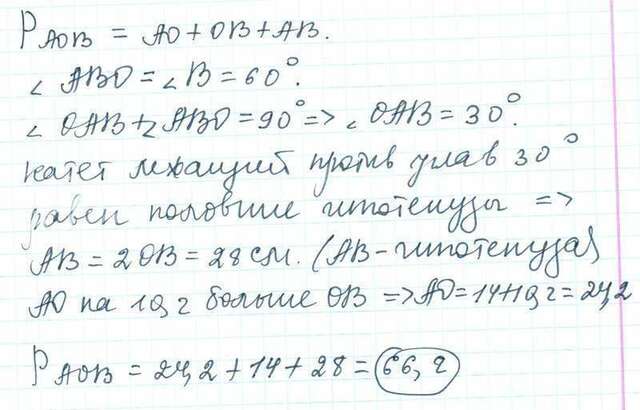 P AOB = AO + OB + AB.
∠ ABO = ∠ B = 60°.
∠ OAB + ∠ ABO = 90° => ∠ OAB = 30°.
Катет лежащий против угла в 30°
равен половине гипотенузы =>
AB = 2OB = 28 см. (AB - гипотенуза)
AO на 10,2 больше OB => AO = 14+10,2 = 24,2
P AOB = 24,2 + 14 + 28 = 66,2